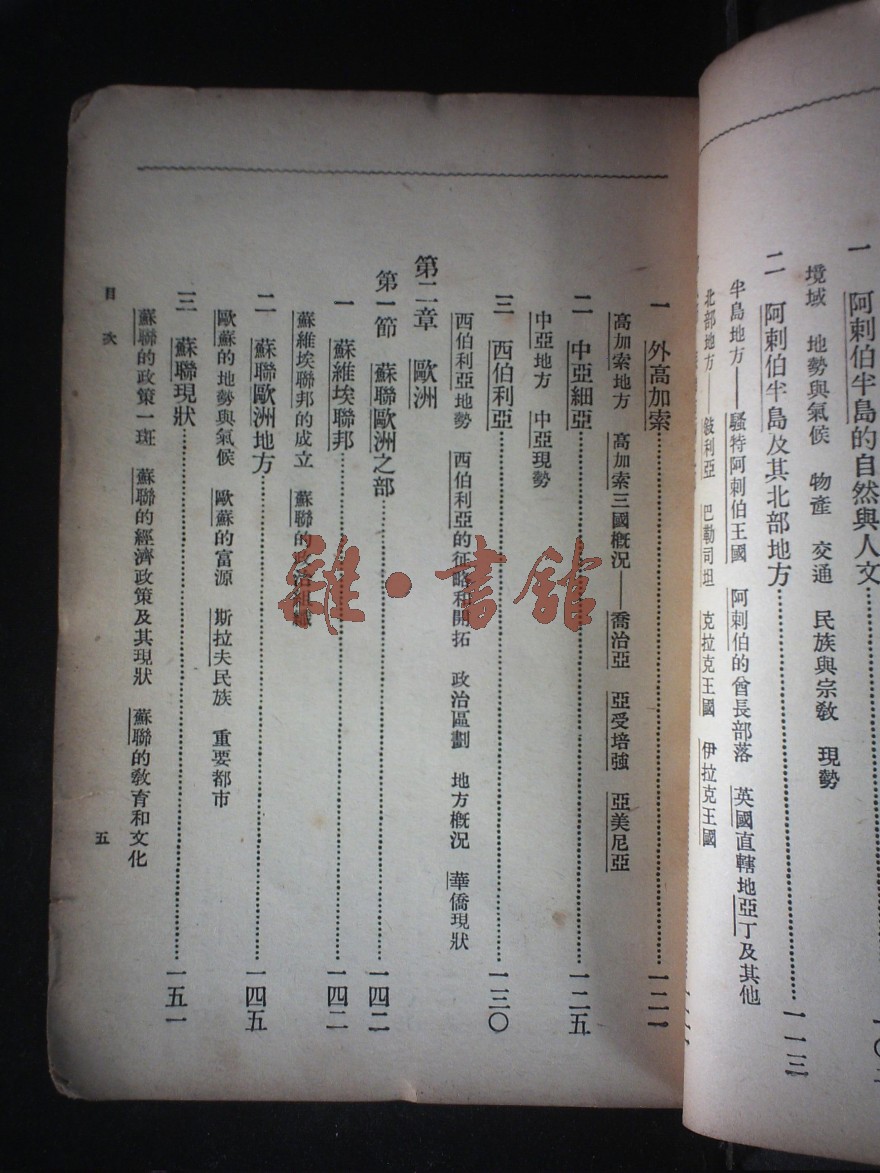 一 阿剌伯半島的自然與人文
境域 地勢與氣候 物產 交通 民族與宗教 現勢
二 阿剌伯半島及其北部地方 一一三
半島地方——騷特阿剌伯王國 阿剌伯的酋長部落 英國直轄地亞丁及其他
北部地方——敍利亞 巴勒司坦 克拉克王國 伊拉克王國
一 外高加索 一二一
高加索地方 高加索三國概況——喬治亞 亞受培強 亞美尼亞
二 中亞細亞 一二五
中亞地方 中亞現勢
三 西伯利亞 一三〇
西伯利亞地勢 西伯利亞的征略和開拓 政治區劃 地方概況 華僑現狀
第二章 歐洲
第一節 蘇聯歐洲之部 一四二
一 蘇維埃聯邦 一四二
蘇維埃聯邦的成立 蘇聯的政治組織
二 蘇聯歐洲地方 一四五
歐蘇的地勢與氣候 歐蘇的富源 斯拉夫民族 重要都市
三 蘇聯現狀 一五一
蘇聯的政策一斑 蘇聯的經濟政策及其現狀 蘇聯的教育和文化
目次 五
雜·書館